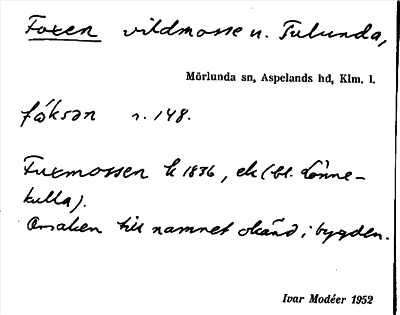 Foxen vildmosse u. Tulunda,
Mörlunda sn, Aspelands hd, Klm. l.
fóksən r. 148.
Fuxmossen k 1836, ek (bl. Lönne-
kulla).
Orsaken till namnet okänd i bygden.
Ivar Modéer 1952